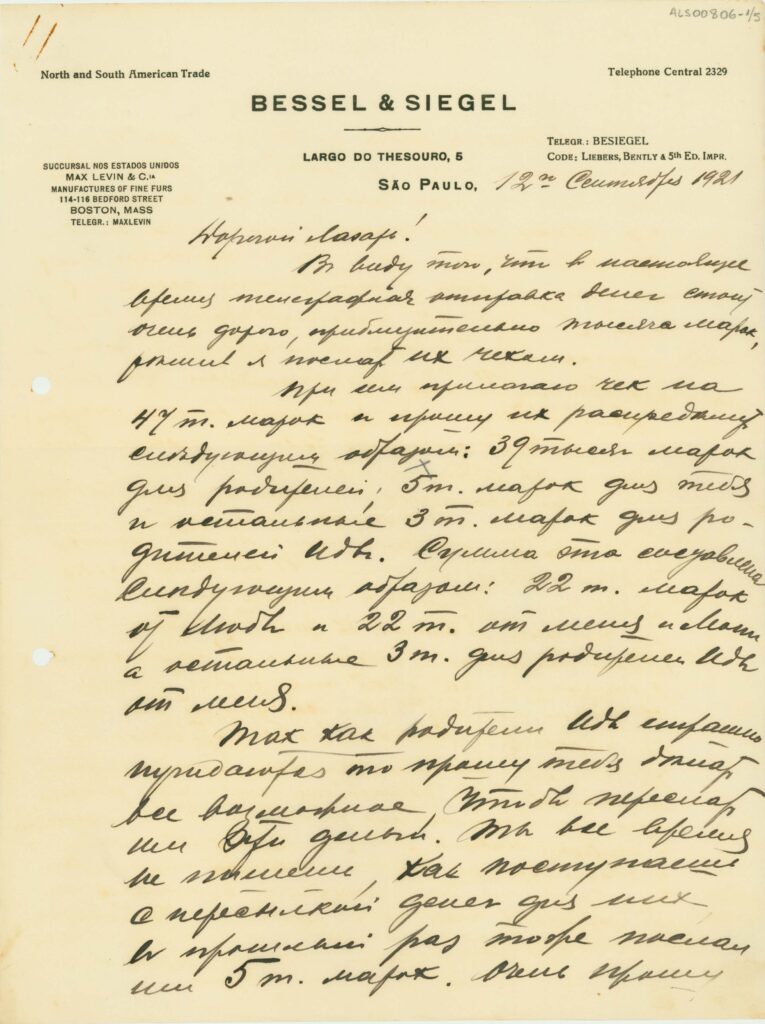 ALS00806-1/5
North and South American Trade
Telephone Central 2329
BESSEL & SIEGEL
LARGO DO THESOURO, 5
TELEGR.: BESIEGEL
CODE: LIEBERS, BENTLY & 5th ED. IMPR.
SUCCURSAL NOS ESTADOS UNIDOS
MAX LEVIN & C.IA
MANUFACTURES OF FINE FURS
114-116 BEDFORD STREET
BOSTON, MASS
TELEGR.: MAXLEVIN
SÃO PAULO, 12го Сентября 1921
Дорогой Лазарь!
В виду того, что в настоящее
время телеграфная отправка денег стоит
очень дорого, приблизительно тысяча марок,
решил я послать их чеком.
При сем прилагаю чек на
47 т. марок и прошу их распределить
следующим образом: 39 тысяч марок
для родителей, 5 т. марок для тебя
и остальные 3 т. марок для ро-
дителей Иды. Сумма эта составлена
следующим образом: 22 т. марок
от Любы и 22 т. от меня и
а остальные 3 т. для родителей Иды
от меня.
Так как родители Иды страшно
нуждаются то прошу тебя делать
все возможное чтобы переслать
им эти деньги. Ты все время
не пишешь, как поступаешь
с пересылкой денег для них
в прошлый раз тоже послал
им 5 т. марок. Очень прошу